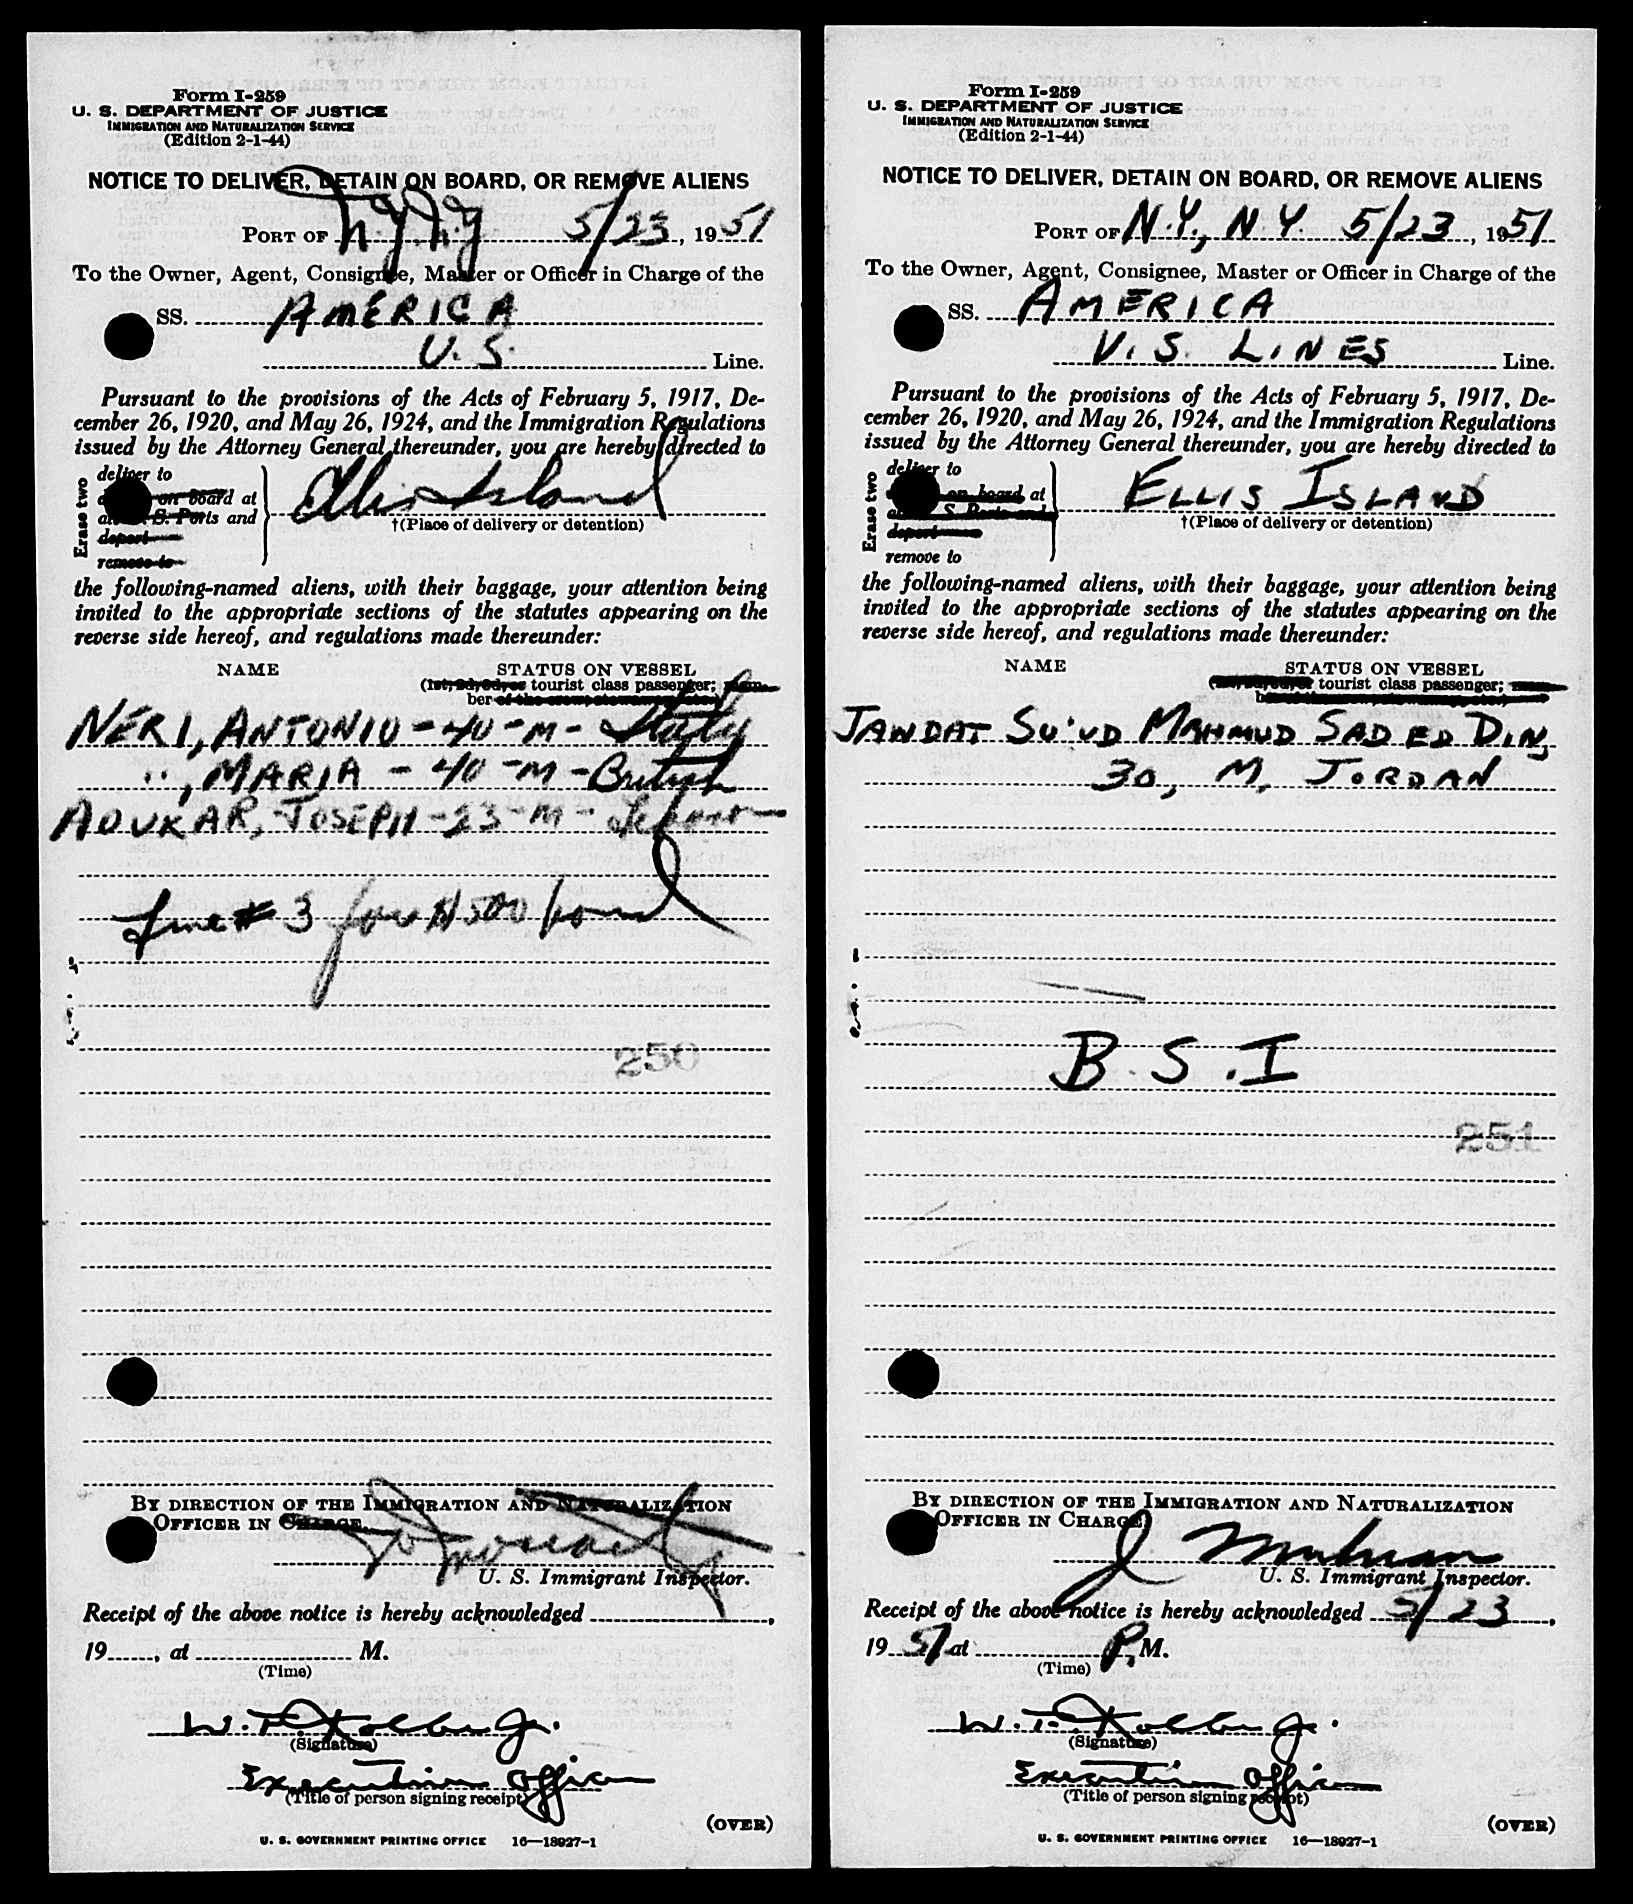 Form I-259
U. S. DEPARTMENT OF JUSTICE
IMMIGRATION AND NATURALIZATION SERVICE
(Edition 2-1-44)
NOTICE TO DELIVER, DETAIN ON BOARD, OR REMOVE ALIENS
PORT OF N.Y.N.Y 5/23, 1951
To the Owner, Agent, Consignee, Master or Officer in Charge of the
SS. AMERICA
U.S. Line.
Pursuant to the provisions of the Acts of February 5, 1917, De-
cember 26, 1920, and May 26, 1924, and the Immigration Regulations
issued by the Attorney General thereunder, you are hereby directed to
Erase two
deliver to
on board at
S. Ports and
depart
remove to
Ellis Island
†(Place of delivery or detention)
the following-named aliens, with their baggage, your attention being
invited to the appropriate sections of the statutes appearing on the
reverse side hereof, and regulations made thereunder:
NAME STATUS ON VESSEL
(1st, 2d, 3d, or tourist class passenger; mem-
ber of the crew,
NERI, ANTONIO - 40 - M - Italy
", MARIA - 40 - M - British
ADUKAR, JOSEPH - 23 - M - Lebanon
Line # 3 for $500 bond
250
BY DIRECTION OF THE IMMIGRATION AND NATURALIZATION
OFFICER IN CHARGE
U. S. Immigrant Inspector.
Receipt of the above notice is hereby acknowledged ,
19 , at M.
(Time)
W.
Jr.
(Signature)
Executive Officer
(Title of person signing receipt)
(OVER)
U. S. GOVERNMENT PRINTING OFFICE 16—18927-1
Form I-259
U. S. DEPARTMENT OF JUSTICE
IMMIGRATION AND NATURALIZATION SERVICE
(Edition 2-1-44)
NOTICE TO DELIVER, DETAIN ON BOARD, OR REMOVE ALIENS
PORT OF N.Y., N.Y. 5/23, 1951
To the Owner, Agent, Consignee, Master or Officer in Charge of the
SS. AMERICA
U.S. LINES Line.
Pursuant to the provisions of the Acts of February 5, 1917, De-
cember 26, 1920, and May 26, 1924, and the Immigration Regulations
issued by the Attorney General thereunder, you are hereby directed to
Erase two
deliver to
on board at
S. Ports and
depart
remove to
ELLIS ISLAND
†(Place of delivery or detention)
the following-named aliens, with their baggage, your attention being
invited to the appropriate sections of the statutes appearing on the
reverse side hereof, and regulations made thereunder:
NAME STATUS ON VESSEL
tourist class passenger;
JAWDAT SU'UD MAHMUD SAD ED DIN,
30, M, JORDAN
B.S.I
251
BY DIRECTION OF THE IMMIGRATION AND NATURALIZATION
OFFICER IN CHARGE
J
U. S. Immigrant Inspector.
Receipt of the above notice is hereby acknowledged 5/23,
1951 at P.M.
(Time)
W.
Jr.
(Signature)
Executive Officer
(Title of person signing receipt)
(OVER)
U. S. GOVERNMENT PRINTING OFFICE 16—18927-1